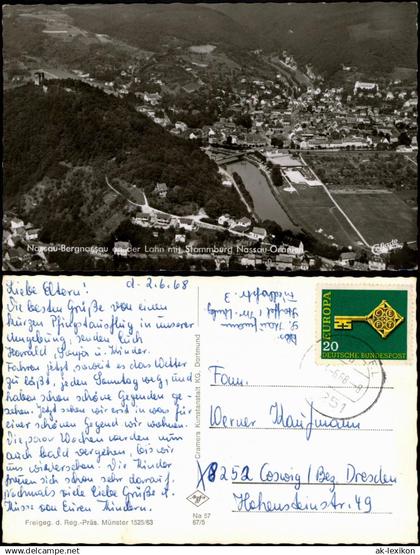 Nassau-Bergnassau an der Lahn mit Stammburg Nassau-Oranien
d. 2.6.68
Liebe Eltern!
Die besten Grüße von einem
kurzen Pfingstausflug in unserer
Umgebung, senden Euch
Harald, Sonja u. Kinder.
Fahren jetzt, soweit es das Wetter
zu läßt, jeden Sonntag weg, und
haben schon schöne Gegenden ge-
sehen. Jetzt sehen wir erst in was für
einer schönen Gegend wir wohnen.
Die paar Wochen werden nun
auch bald vergehen, bis wir
uns wiedersehen. Die Kinder
freuen sich schon sehr darauf.
Nochmals viele liebe Grüße u.
Küsse von Euren Kindern.
Freigeg. d. Reg.-Präs. Münster 1525/63
Cramers Kunstanstalt KG. Dortmund
Na 57
67/5
Abs.
EUROPA
20
DEUTSCHE BUNDESPOST
Fam.
Werner Kaufmann
x 8252 Coswig / Bez. Dresden
Hohensteinstr. 49
© ak-lexikon
ak-lexikon.de